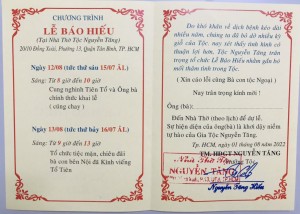 CHƯƠNG TRÌNH
LỄ BÁO HIẾU
(Tại Nhà Thờ Tộc Nguyễn Tăng)
20/10 Đồng Xoài, Phường 13, Quận Tân Bình, TP. HCM
Ngày 12/08 (tức thứ sáu 15/07 ÂL)
Sáng: Từ 8 giờ đến 10 giờ
Cung nghinh Tiên Tổ và Ông bà
chính thức khai lễ
( cúng chay )
Ngày 13/08 (tức thứ bảy 16/07 ÂL)
Sáng: Từ 9 giờ đến 13 giờ
Tổ chức tiệc mặn, chiêu đãi
bà con bên Nội đã Kính viếng
Tổ Tiên
Do khó khăn vì dịch bệnh kéo dài
nhiều năm, chúng ta đã bỏ dở nhiều kỳ
giỗ của Tộc, nay xét thấy tình hình có
thuận lợi hơn, Tộc Nguyễn Tăng trân
trọng tổ chức Lễ Báo Hiếu nhằm gắn bó
mối thâm tình trong Tộc.
( Xin cáo lỗi cùng Bà con tộc Ngoại )
Nay trân trọng kính mời !
Ông (bà):
Đến Nhà Thờ (theo lịch) để dự lễ.
Sự hiện diện của ông(bà) là khơi dậy niềm
tự hào của Gia Tộc chúng ta.
TP. HCM, ngày 01 tháng 08 năm 2022
TM-HĐGT NGUYỄN TĂNG
Nhà Thờ Tộc
Trưởng Tộc
NGUYỄN TĂNG
Nguyễn Tăng Hiếu